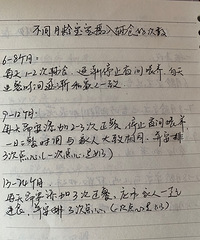 不同月龄宝宝摄入辅食的次数
6-8个月:
每天1-2次辅食,逐渐停止夜间喂养,每天
进餐时间逐渐和家人一致
9-12个月:
每天需要添加2-3次正餐,停止夜间喂养,
一日三餐时间与家人大致相同,并安排
3次点心(一次点心是奶)
13-24个月
每天需要添加3次正餐,应与家人一起
进食,并安排3次点心,(一次点心是奶)